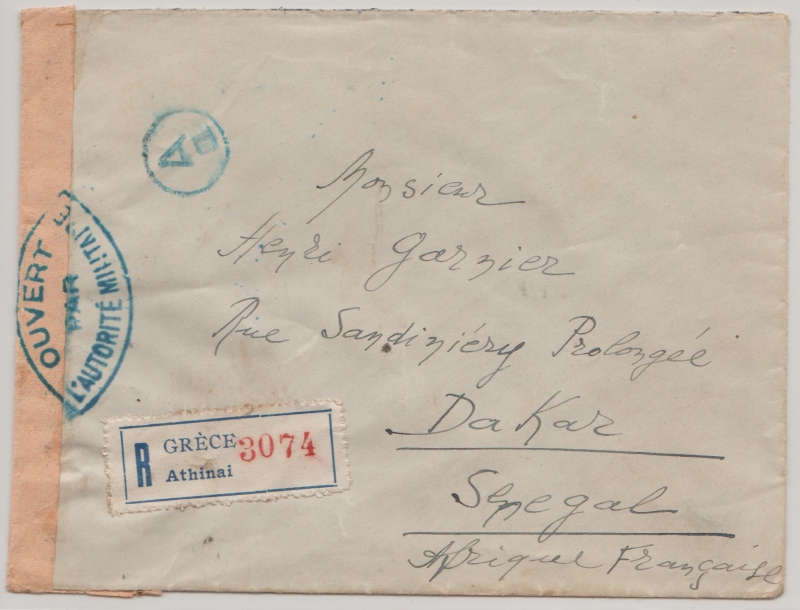 Monsieur
Henri Garnier
Rue Sandiniéry Prolongée
DaKar
Senegal
Afrique Française
OUVERT
PAR
L'AUTORITÉ MILITAIRE
R GRÈCE 3074
Athinai